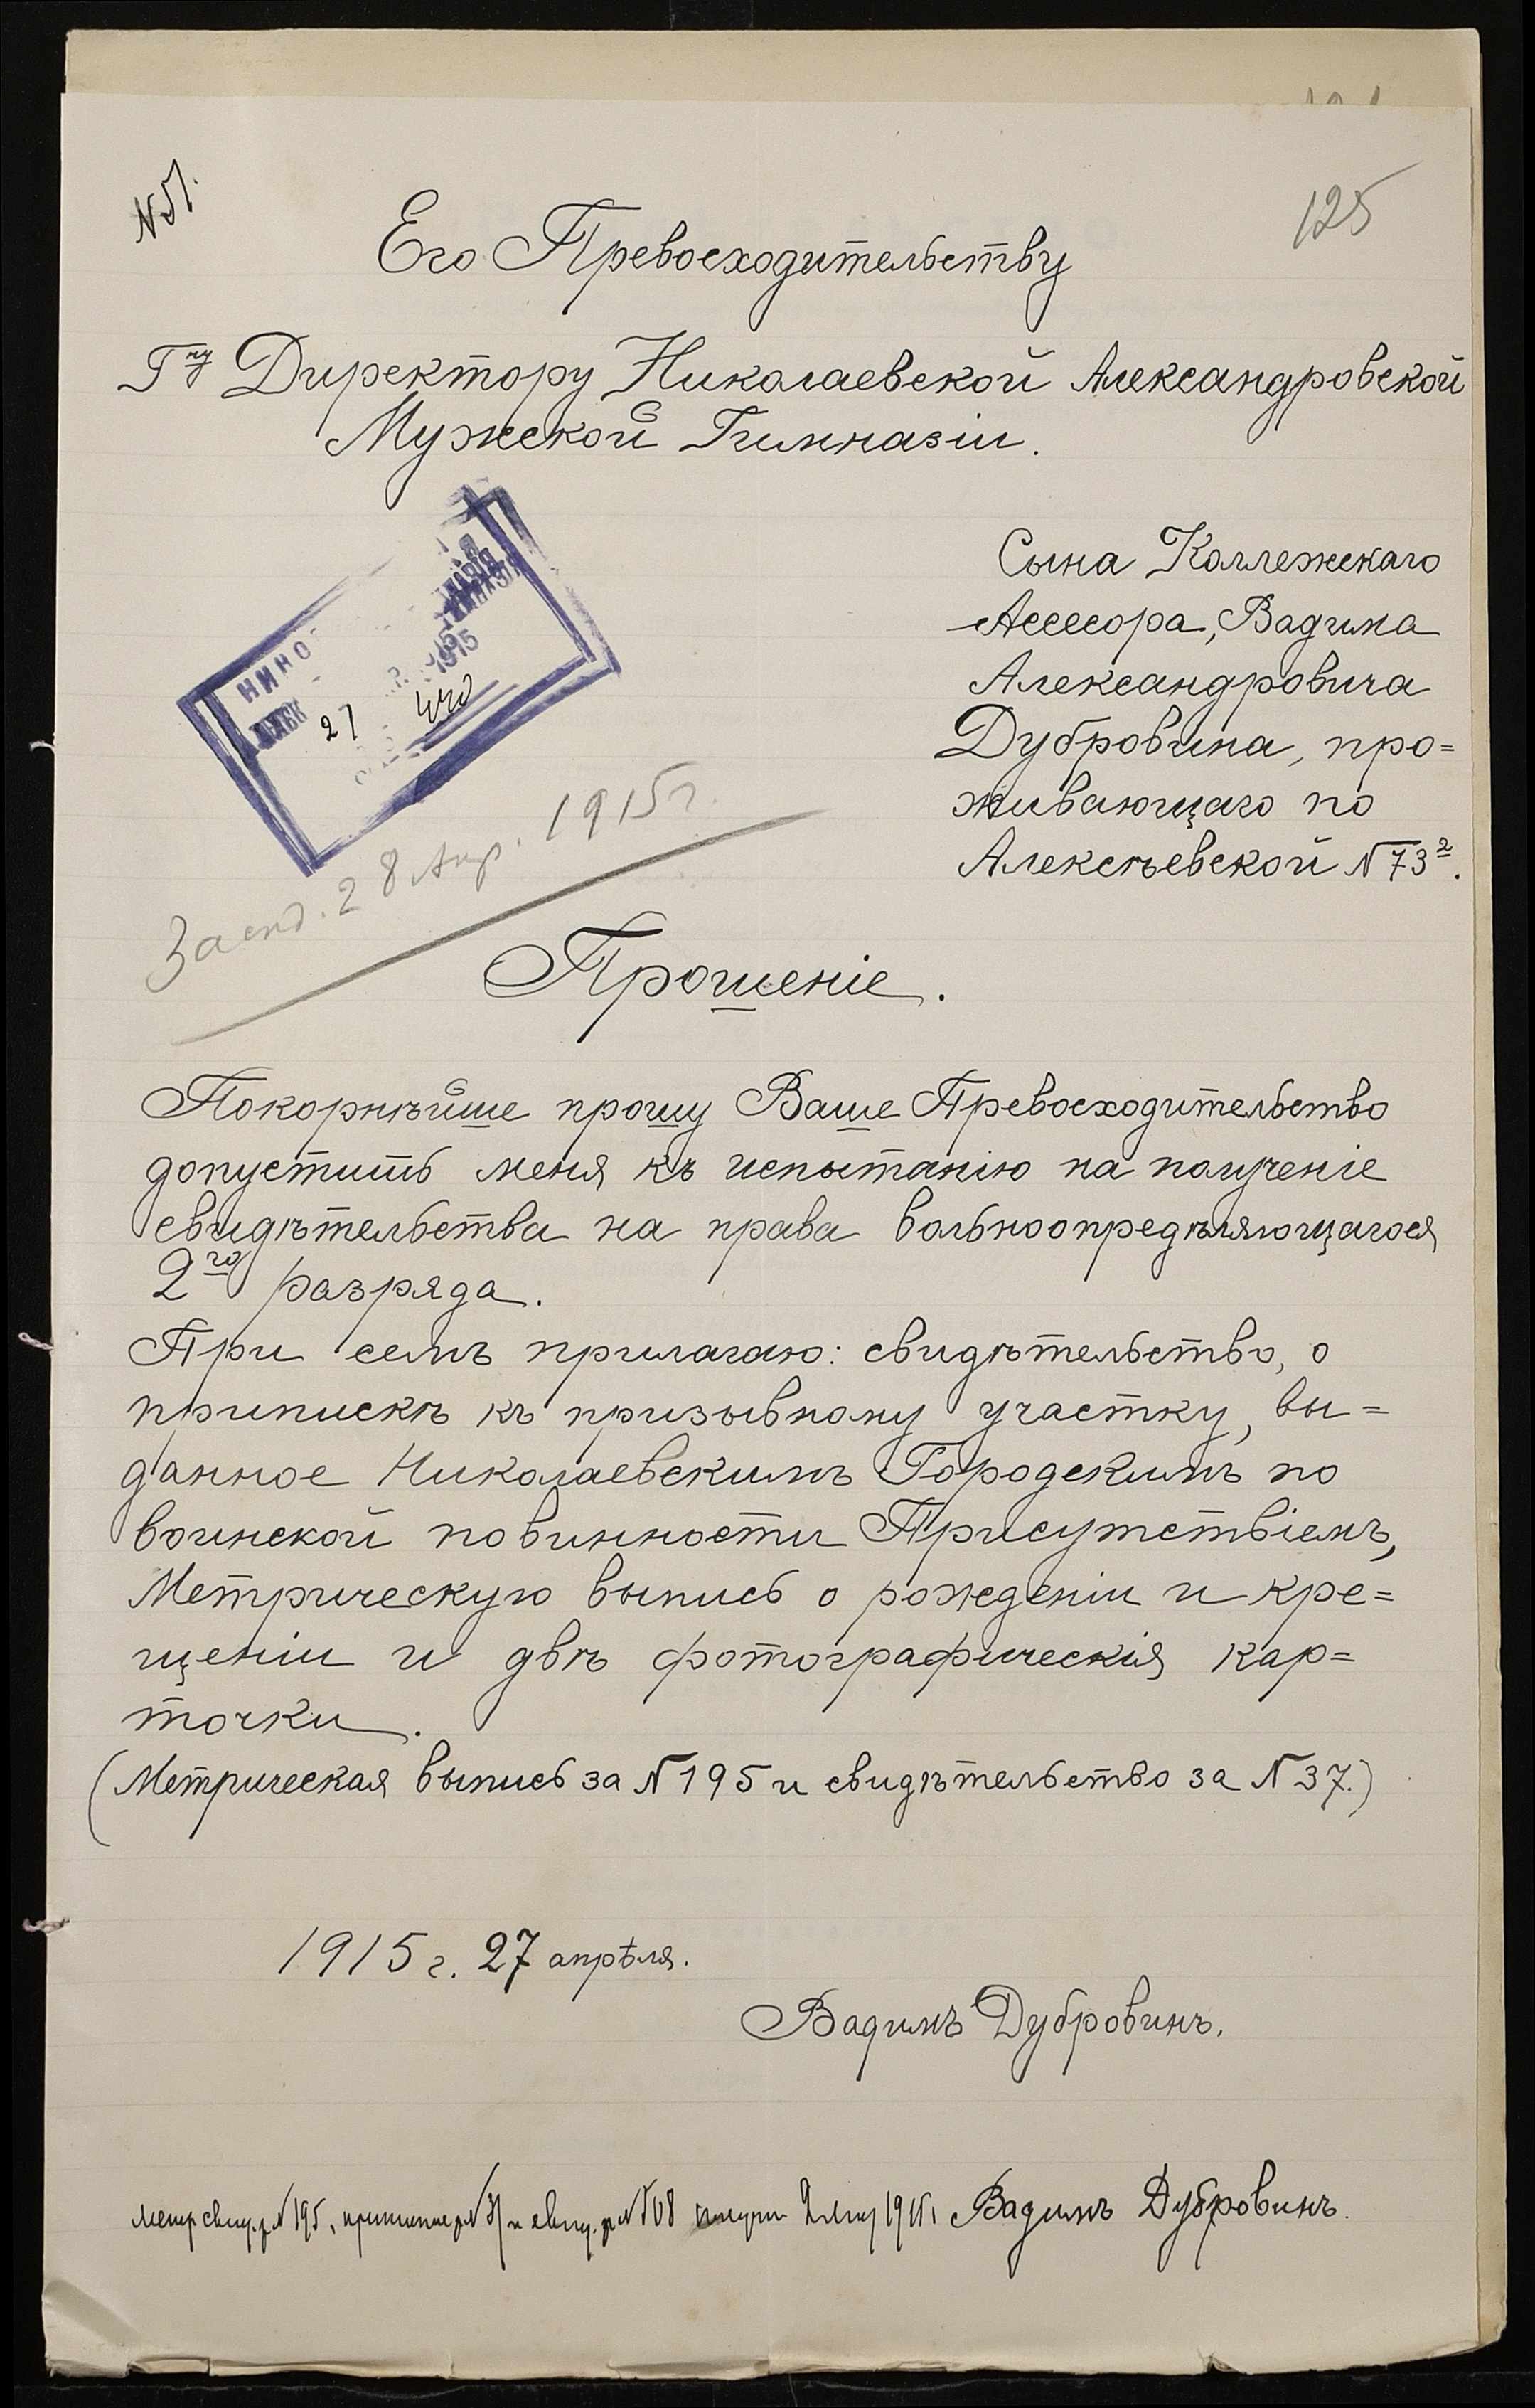 N 51.
125
Его Превосходительству
Гну Директору Николаевской Александровской
Мужской Гимназіи.
Сына Коллежскаго
Ассесора, Вадима
Александровича
Дубровина, про=
живающаго по
Алексѣевской N 73².
НИКО
27
1915
440
Засид. 28 Апр. 1915 г.
Прошеніе.
Покорнѣйше прошу Ваше Превосходительство
допустить меня къ испытанію на полученіе
свидѣтельства на права вольноопредѣляющагося
2го разряда.
При семъ прилагаю: свидѣтельство, о
припискѣ къ призывному участку, вы=
данное Николаевскимъ Городскимъ по
воинской повинности Присутствіемъ,
Метрическую выпись о рожденіи и кре=
щеніи и двѣ фотографическія кар=
точки.
(Метрическая выпись за N 195 и свидѣтельство за N 37.)
1915 г. 27 апрѣля.
Вадимъ Дубровинъ.
Метр свид. з N 195, N 37 и свид. з N 508 1915 г Вадимъ Дубровинъ.